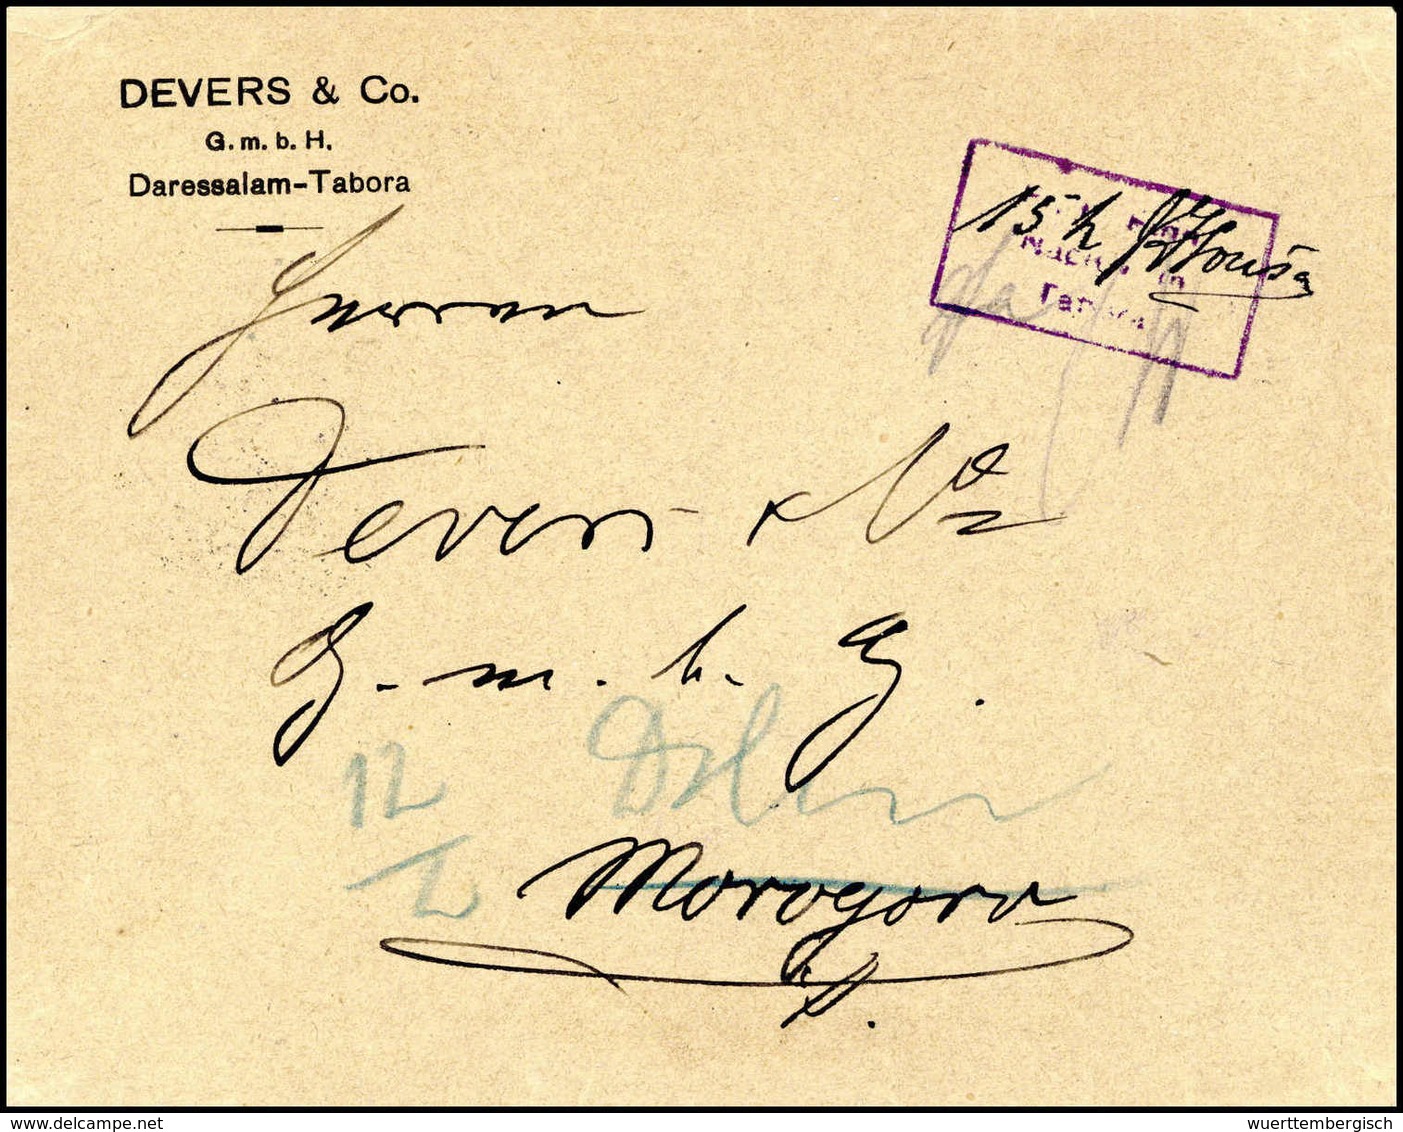 DEVERS & Co.
G. m. b. H.
Daressalam-Tabora
15 h
Tabora
Herren
Devers & Co
G. m. b. H.
12
Morogoro
delcampe.net
wuerttembergisch